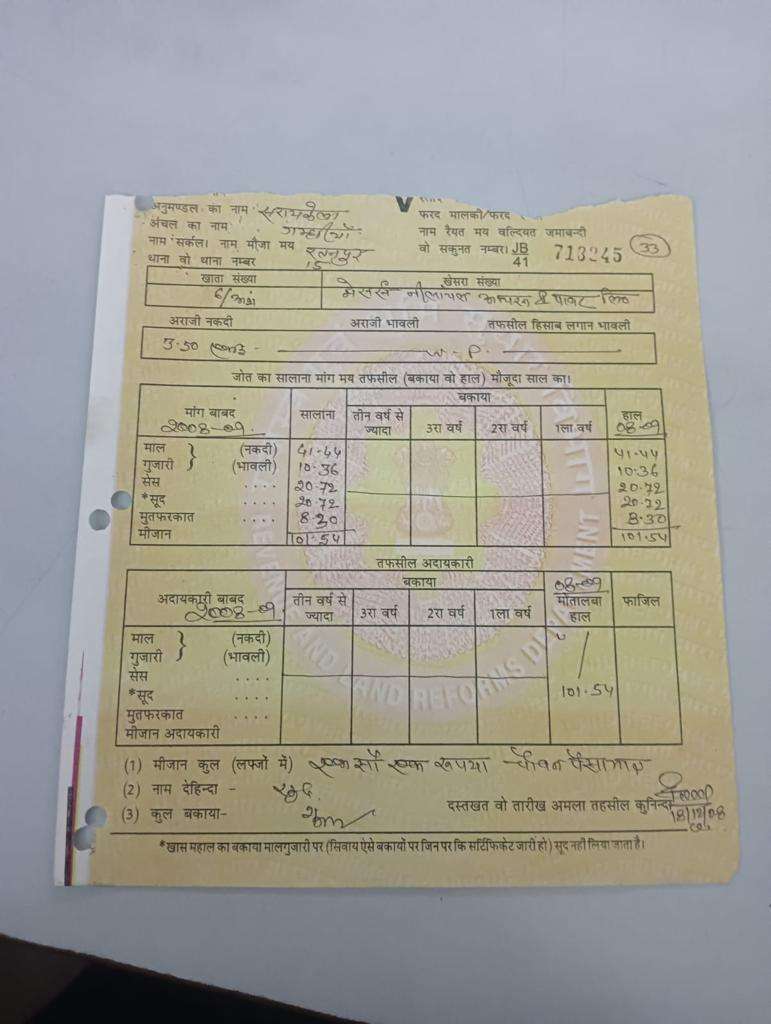 अनुमण्डल का नाम सरायकेला
फरद मालकी/फरद
अंचल का नाम
नाम रैयत मय वल्दियत जमाबन्दी
नाम सर्कल। नाम मौजा मय
वो सकुनत नम्बर। JB 41 713245 33
थाना वो थाना नम्बर 15
खाता संख्या खेसरा संख्या
मेसर्स नीलांचल लि०
अराजी नकदी अराजी भावली तफसील हिसाब लगान भावली
3.50
जोत का सालाना मांग मय तफसील (बकाया वो हाल) मौजूदा साल का।
मांग बाबद सालाना बकाया हाल
2008-09 तीन वर्ष से ज्यादा 3रा वर्ष 2रा वर्ष 1ला वर्ष 08-09
माल (नकदी) 41.44 41.44
गुजारी (भावली) 10.36 10.36
सेस .... 20.72 20.72
*सूद .... 20.72 20.72
मुतफरकात .... 8.30 8.30
मीजान 101.54 101.54
तफसील अदायकारी
अदायकारी बाबद बकाया 08-09
2008-09 तीन वर्ष से ज्यादा 3रा वर्ष 2रा वर्ष 1ला वर्ष मोतालबा हाल फाजिल
माल (नकदी)
गुजारी (भावली)
सेस ....
*सूद .... 101.54
मुतफरकात ....
मीजान अदायकारी
(1) मीजान कुल (लफ्जों में) एक सौ एक रूपया चौवन पैसा मात्र
(2) नाम देहिन्दा - खुद
दस्तखत वो तारीख अमला तहसील कुनिन्दा
(3) कुल बकाया-
18/12/08
*खास महाल का बकाया मालगुजारी पर (सिवाय ऐसे बकायों पर जिन पर कि सर्टिफिकेट जारी हो) सूद नही लिया जाता है।
LAND REFORMS